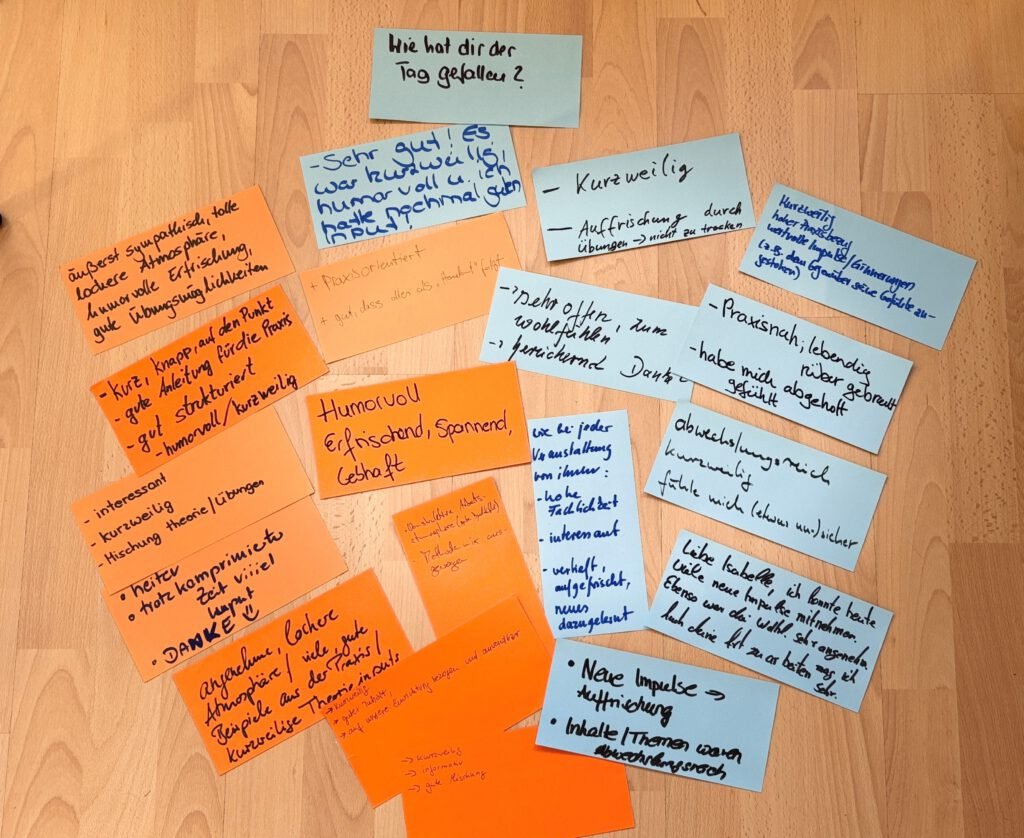 Wie hat dir der
Tag gefallen?
- Sehr gut! Es
war kurzweilig,
humorvoll u. ich
hatte nochmal guten
Input!
- Kurzweilig
- Auffrischung durch
Übungen → nicht zu trocken
Kurzweilig
hoher Praxisbezug
wertvolle Impulse/Erinnerungen
(z.B. dem Gegenüber seine Gefühle zu-
gestehen)
äußerst sympathisch, tolle
lockere Atmosphäre,
humorvolle Erfrischung,
gute Übungsmöglichkeiten
+ Praxisorientiert
+ gut, dass alles als
→ sehr offen
wohlfühlen, zum
→ bereichernd Danke
- Praxisnah, lebendig
rüber gebracht
- habe mich abgeholt
gefühlt
- kurz, knapp, auf den Punkt
- gute Anleitung für die Praxis
- gut strukturiert
- humorvoll/kurzweilig
Humorvoll
Erfrischend, Spannend,
Lebhaft
wie bei jeder
Veranstaltung
von ihnen:
- hohe
Fachlichkeit
- interessant
- vertieft,
aufgefrischt,
neues
dazugelernt
abwechslungsreich
kurzweilig
fühle mich (etwas un-)sicher
- interessant
- kurzweilig
- Mischung Theorie/Übungen
Atmosphäre
- Methode
• heiter
• trotz komprimierter
Zeit viiiel
Input
• DANKE ☺
Liebe Isabelle, ich konnte heute
viele neue Impulse mitnehmen.
Ebenso war die
sehr angenehm.
deine Art zu arbeiten
sehr.
angenehme, lockere
Atmosphäre/ viele, gute
Beispiele aus der Praxis/
kurzweilige Theorieinputs
→ kurzweilig
→ guter Inhalt,
→ auf unsere Einrichtung bezogen und anwendbar
• Neue Impulse →
Auffrischung
• Inhalte/Themen waren
abwechslungsreich
→ kurzweilig
→ informativ
→ gute Mischung